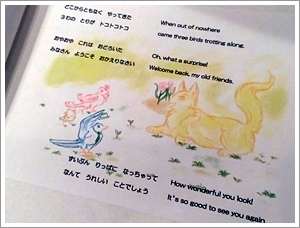 どこからともなく　やってきた
3わの　とりが　トコトコトコ
When out of nowhere
came three birds trotting along.
おやおや　これは　おどろいた
みなさん　ようこそ　おかえりなさい
Oh, what a surprise!
Welcome back, my old friends.
ずいぶん　りっぱに　なっちゃって
なんて　うれしい　ことでしょう
How wonderful you look!
It's so good to see you again